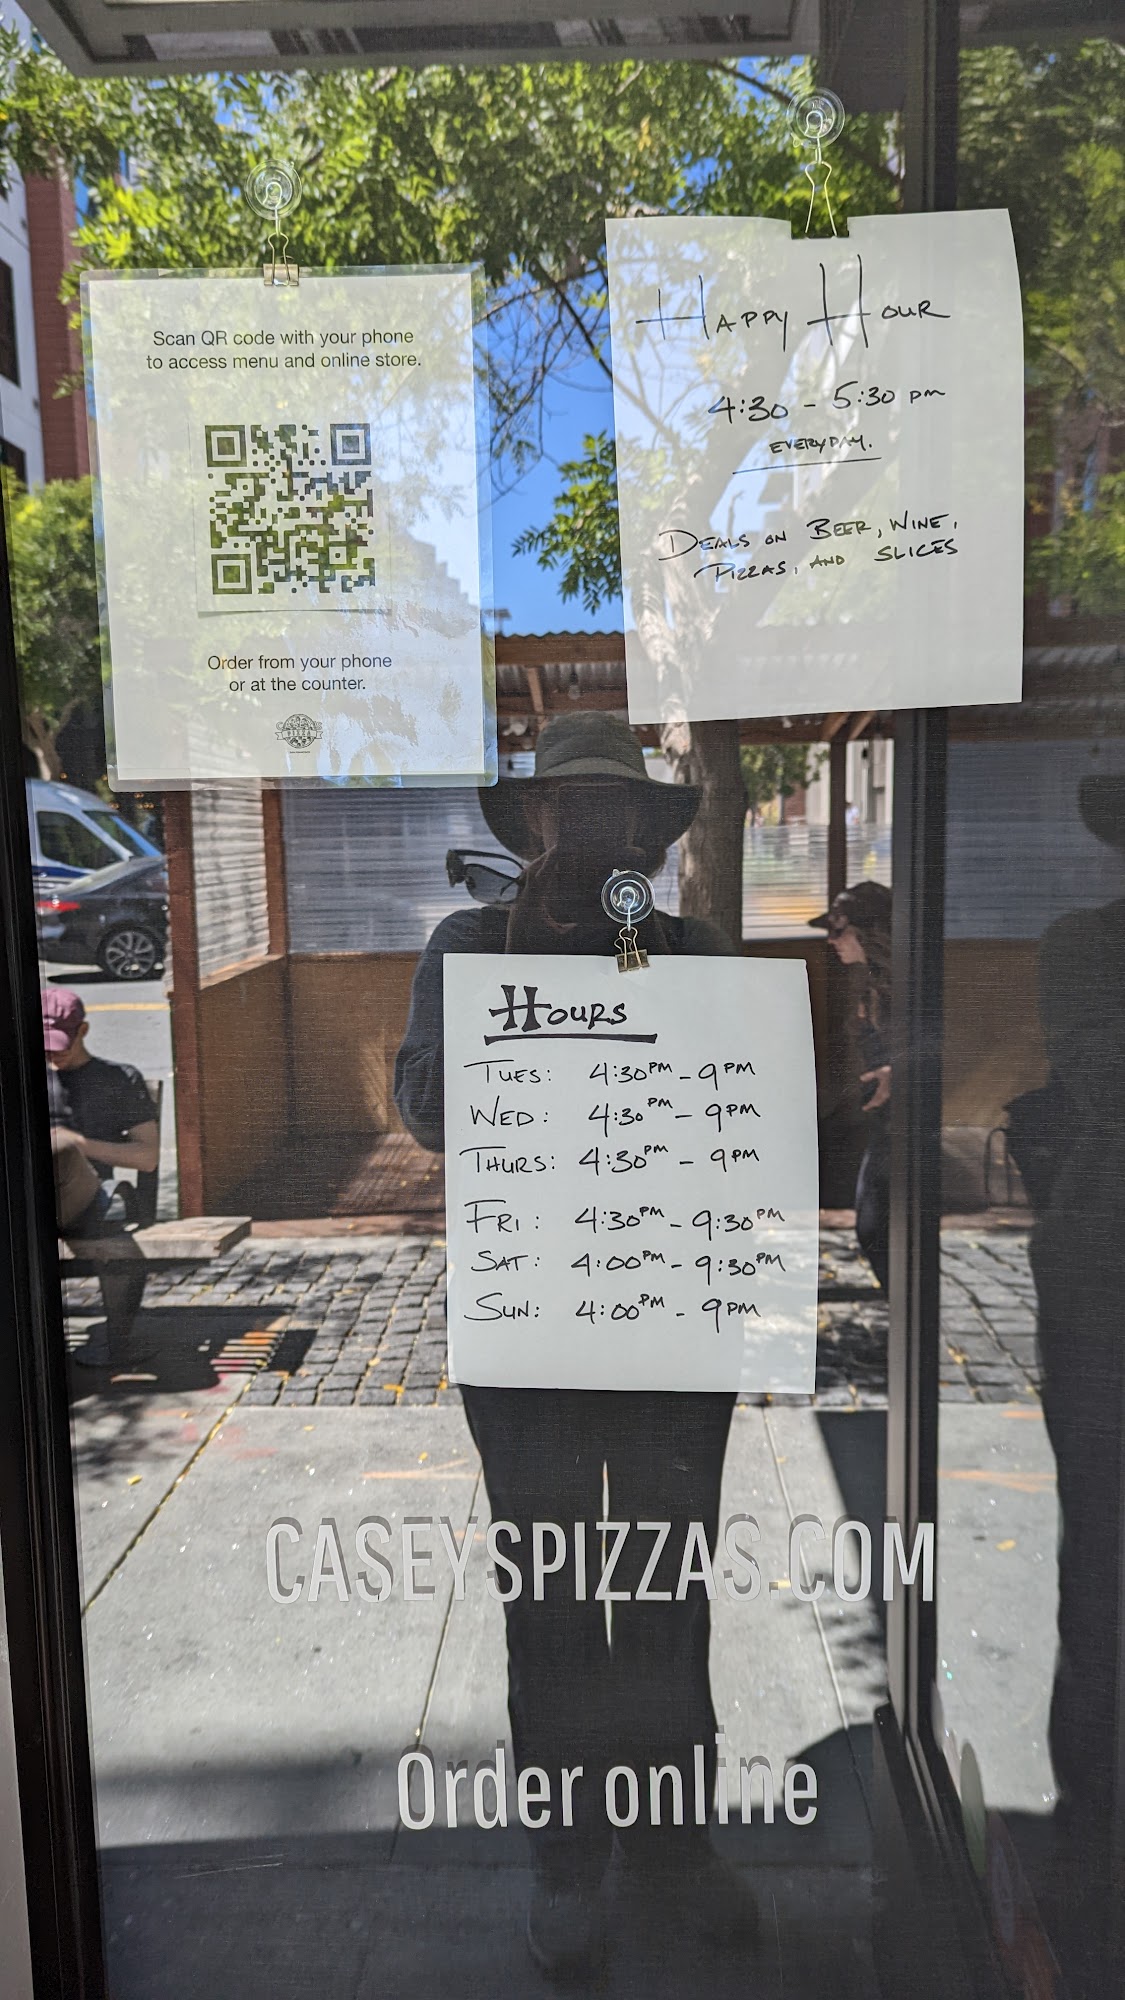 Scan QR code with your phone
to access menu and online store.
Order from your phone
or at the counter.
PIZZA
HAPPY HOUR
4:30 - 5:30 PM
EVERYDAY.
DEALS ON BEER, WINE,
PIZZAS, AND SLICES
HOURS
TUES: 4:30PM - 9PM
WED: 4:30PM - 9PM
THURS: 4:30PM - 9PM
FRI: 4:30PM - 9:30PM
SAT: 4:00PM - 9:30PM
SUN: 4:00PM - 9PM
CASEYSPIZZAS.COM
Order online